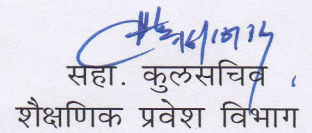 सहा. कुलसचिव
शैक्षणिक प्रवेश विभाग